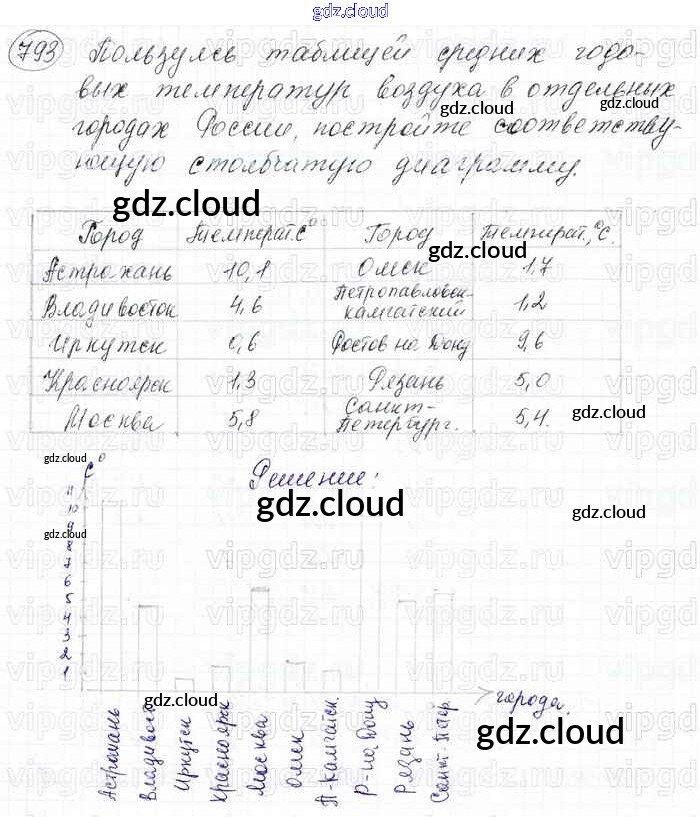 gdz.cloud
793 Пользуясь таблицей средних годо-
вых температур воздуха в отдельных
gdz.cloud gdz.cloud
городах России, постройте соответству-
ющую столбчатую диаграмму.
gdz.cloud
Город Температ. С° Город Температ., °С.
gdz.cloud
Астрахань 10,1 Омск 1,7
Владивосток 4,6 Петропавловск-
камчатский 1,2
Иркутск 0,6 Ростов на Дону 9,6
Красноярск 1,3 Рязань 5,0
Москва 5,8 Санкт-
Петербург. 5,4.
gdz.cloud
gdz.cloud
С° Решение:
11
10
gdz.cloud
gdz.cloud
gdz.cloud
9
8
7
6
5
4
3
2
1
gdz.cloud
gdz.cloud
города.
Астрахань
Владивост
Иркутск
Красноярск
Москва
Омск
П-Камчатск.
Р-на Дону
Рязань
Санкт-Петер.
gdz.cloud
gdz.cloud